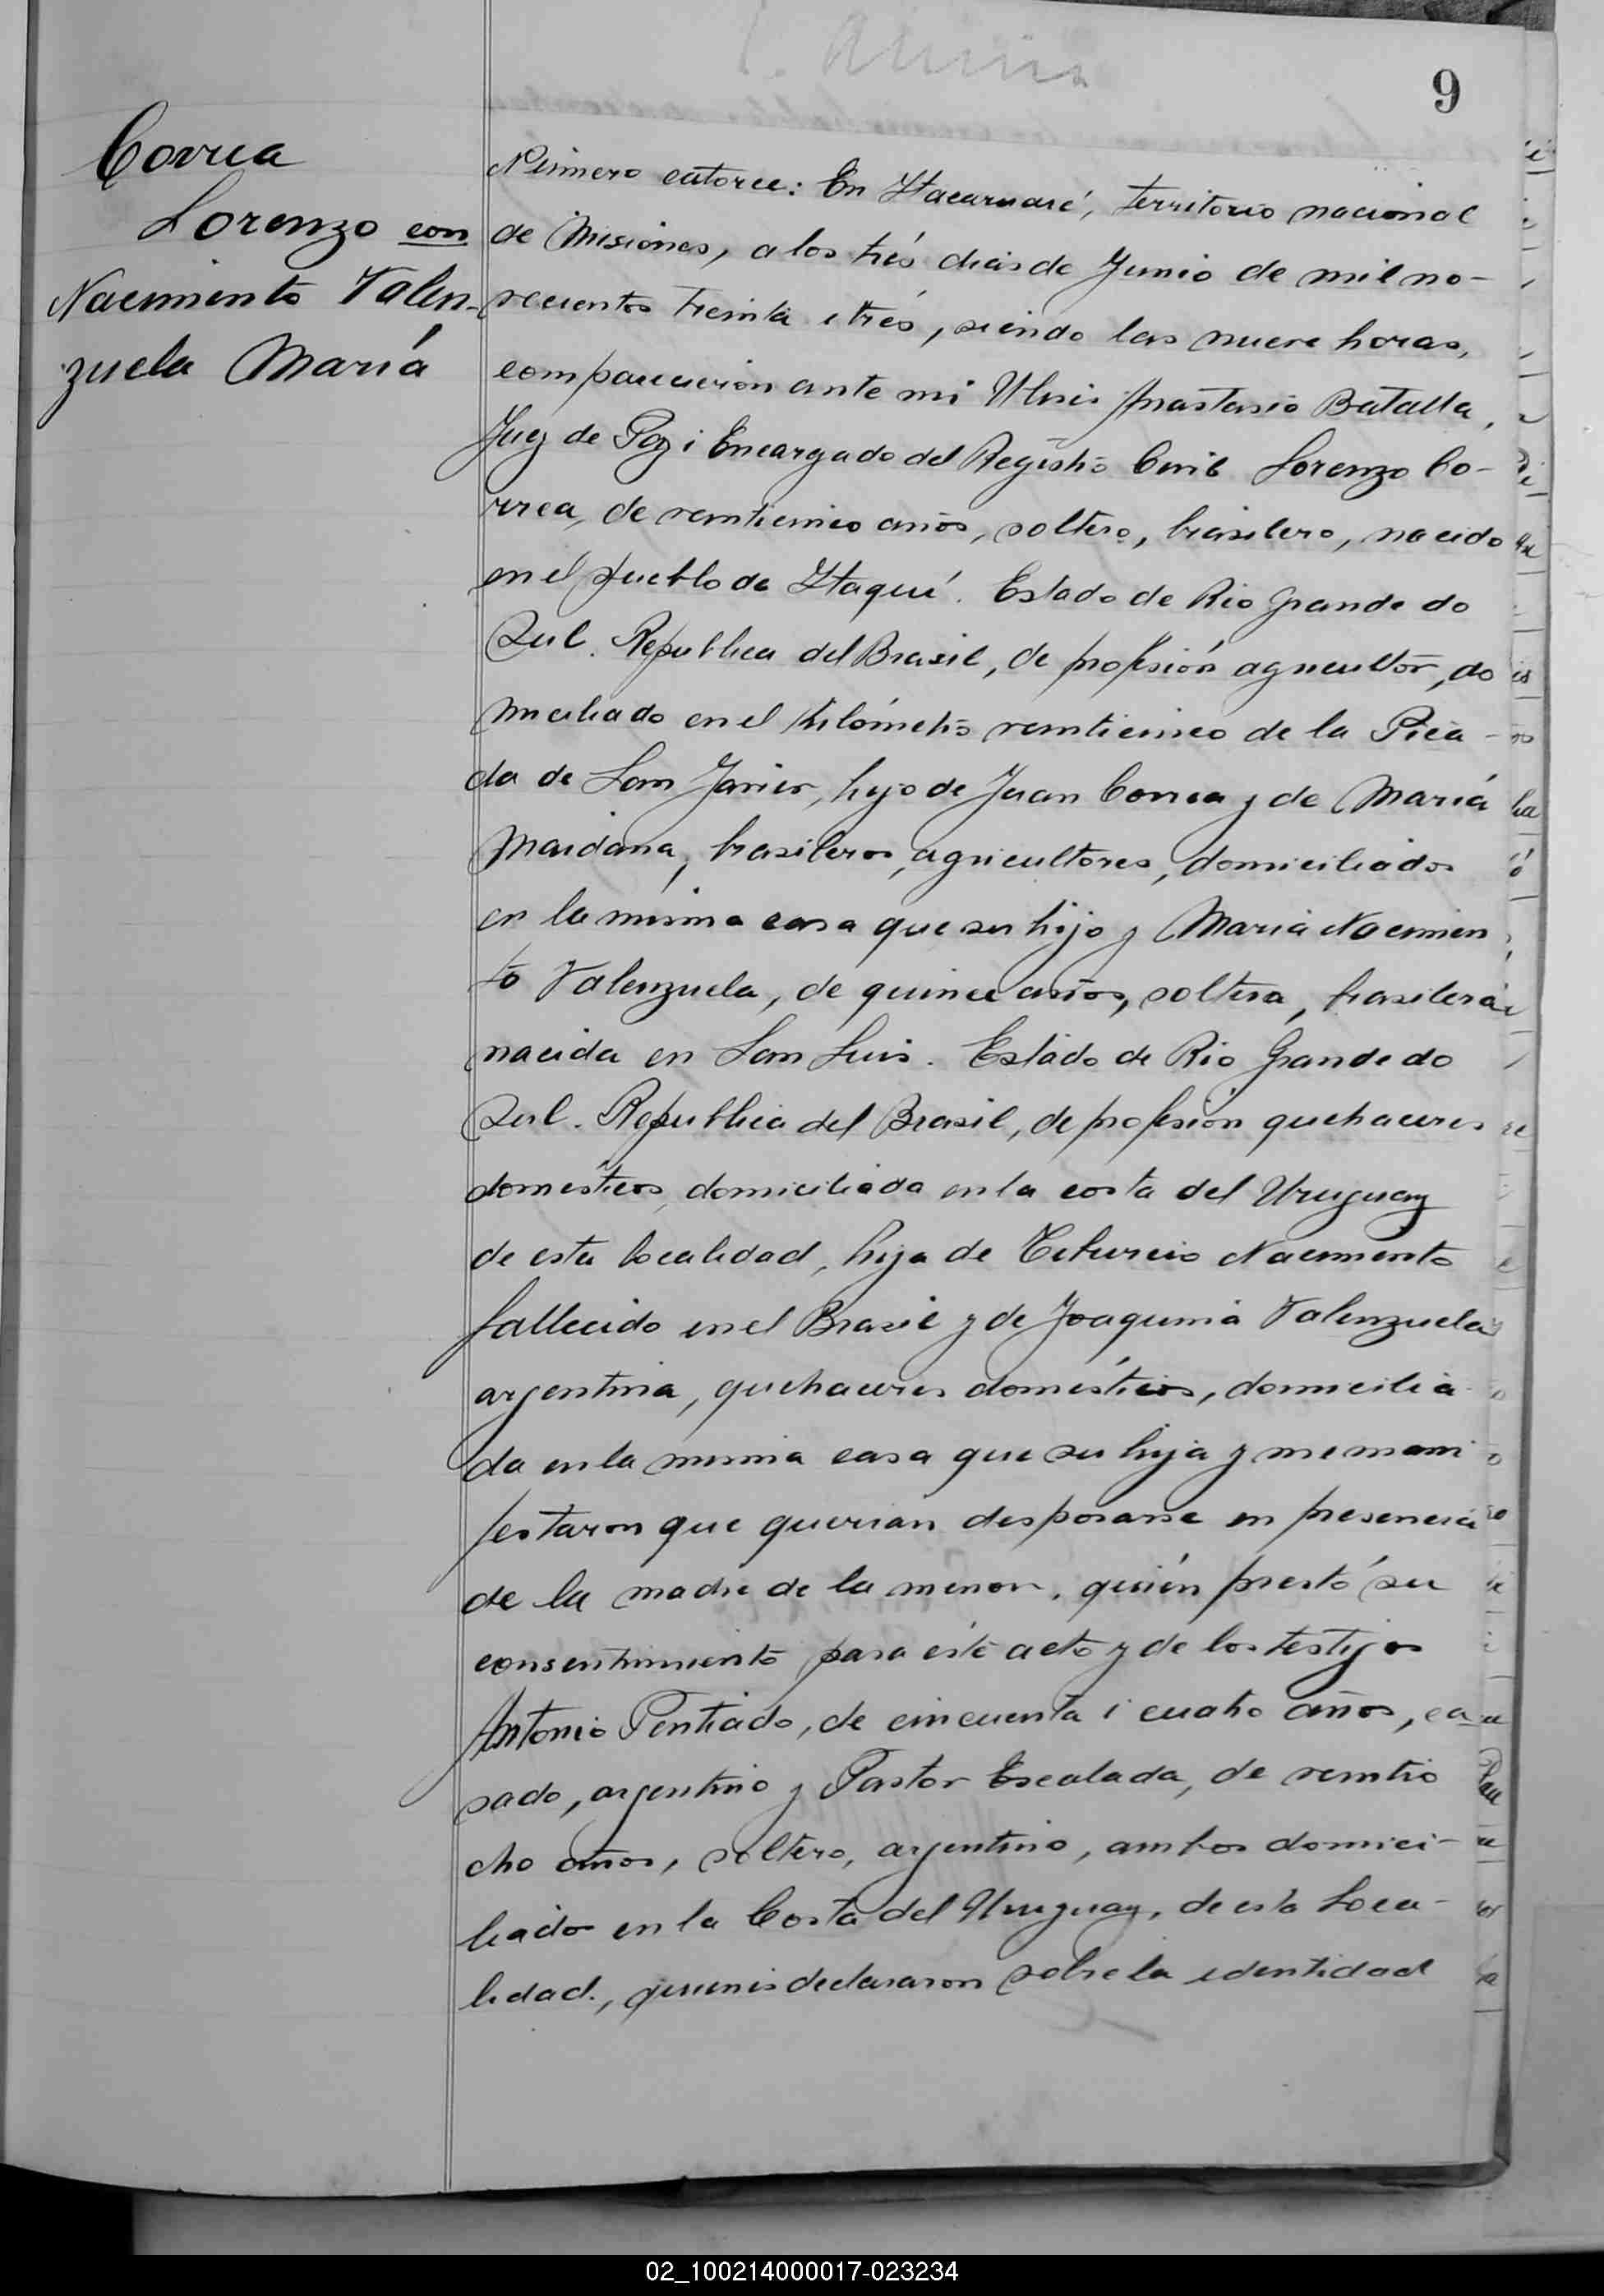 9
Correa
Lorenzo con
Nacimiento Valen-
zuela María
Número catorce: En Itacaruaré, territorio nacional
de Misiones, a los trés dias de Junio de mil no-
vecientos treinta i trés, siendo las nueve horas,
comparecieron ante mi Ulises Anastasio Batalla,
Juez de Paz i Encargado del Registro Civil Lorenzo Co-
rrea, de venticinco años, soltero, brasilero, nacido
en el pueblo de Itaquí. Estado de Rio Grande do
Sul. Republica del Brasil, de profesión agricultor, do
miciliado en el kilómetro venticinco de la Pica-
da de San Javier, hijo de Juan Correa y de María
Maidana, brasileros, agricultores, domiciliados
en la misma casa que su hijo y Maria Nacimien
to Valenzuela, de quince años, soltera, brasilera
nacida en San Luis. Estado de Rio Grande do
Sul. Republica del Brasil, de profesión quehaceres
domésticos, domiciliada en la costa del Uruguay
de esta localidad, hija de Tiburcio Nacimiento
fallecido en el Brasil y de Joaquina Valenzuela
argentina, quehaceres domésticos, domicilia
da en la misma casa que su hija y me mani
festaron que querian desposarse en presencia
de la madre de la menor, quién prestó su
consentimiento para éste acto y de los testigos
Antonio Pentiado, de cincuenta i cuatro años, ca
sado, argentino y Pastor Escalada, de ventio
cho años, soltero, argentino, ambos domici-
liados en la Costa del Uruguay, de esta Loca-
lidad., quienes declararon sobre la identidad
02_100214000017-023234